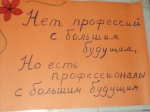 Нет профессий
с большим
будущим,
Но есть
профессионалы
с большим будущим